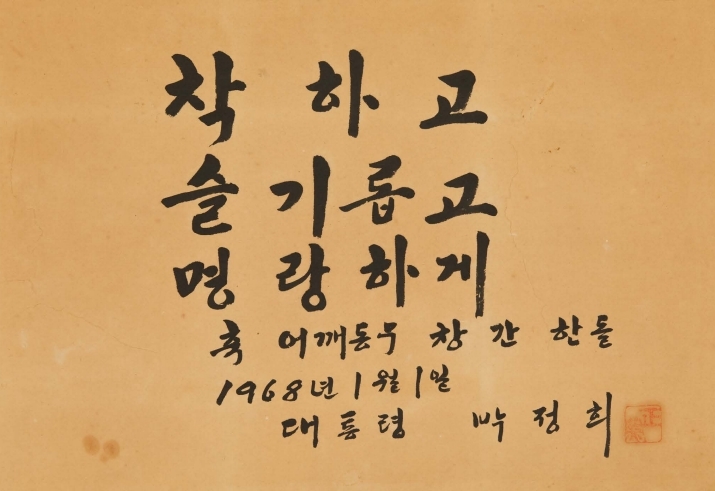 착하고
슬기롭고
명랑하게
축 어깨동무 창간 한돌
1968년 1월 1일
대통령 박정희